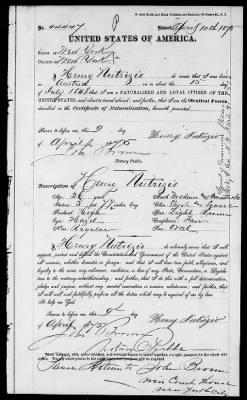 No 44447
April 10th 1875
UNITED STATES OF AMERICA.
STATE OF New York
COUNTY OF New York
I, Henry Nutrizio do swear that I was born
in Austria on the 15
of July 1848 that I am a NATURALIZED AND LOYAL CITIZEN OF THE
UNITED STATES, and about to travel abroad; and further, that I am the Identical Person
described in the Certificate of Naturalization, herewith presented.
Sworn to before me this 9 day
of April 1875
Henry Nutrizio
John Brown
Notary Public.
Description of Henry Nutrizio
Age,
Stature, 5 feet
Forehead, High
Eyes, Hazel
Nose, Regular
Mouth, Medium
Chin,
Hair, Light Brown
Complexion, Fair
Face, Oval
I, Henry Nutrizio do solemnly swear that I will
support, protect and defend the Constitution and Government of the United States against
all enemies, whether domestic or foreign; and that I will bear true faith, allegiance, and
loyalty to the same, any ordinance, resolution or law of any State, Convention, or Legislature
to the contrary notwithstanding; and further, that I do this with a full determination,
pledge and purpose, without any mental reservation or evasion whatsoever; and further, that
I will well and faithfully perform all the duties which may be required of me by law.
So help me God.
Sworn to before me this 9th
day of April 1875
Henry Nutrizio
John Brown
Please return to John Brown
New Court House
New York City